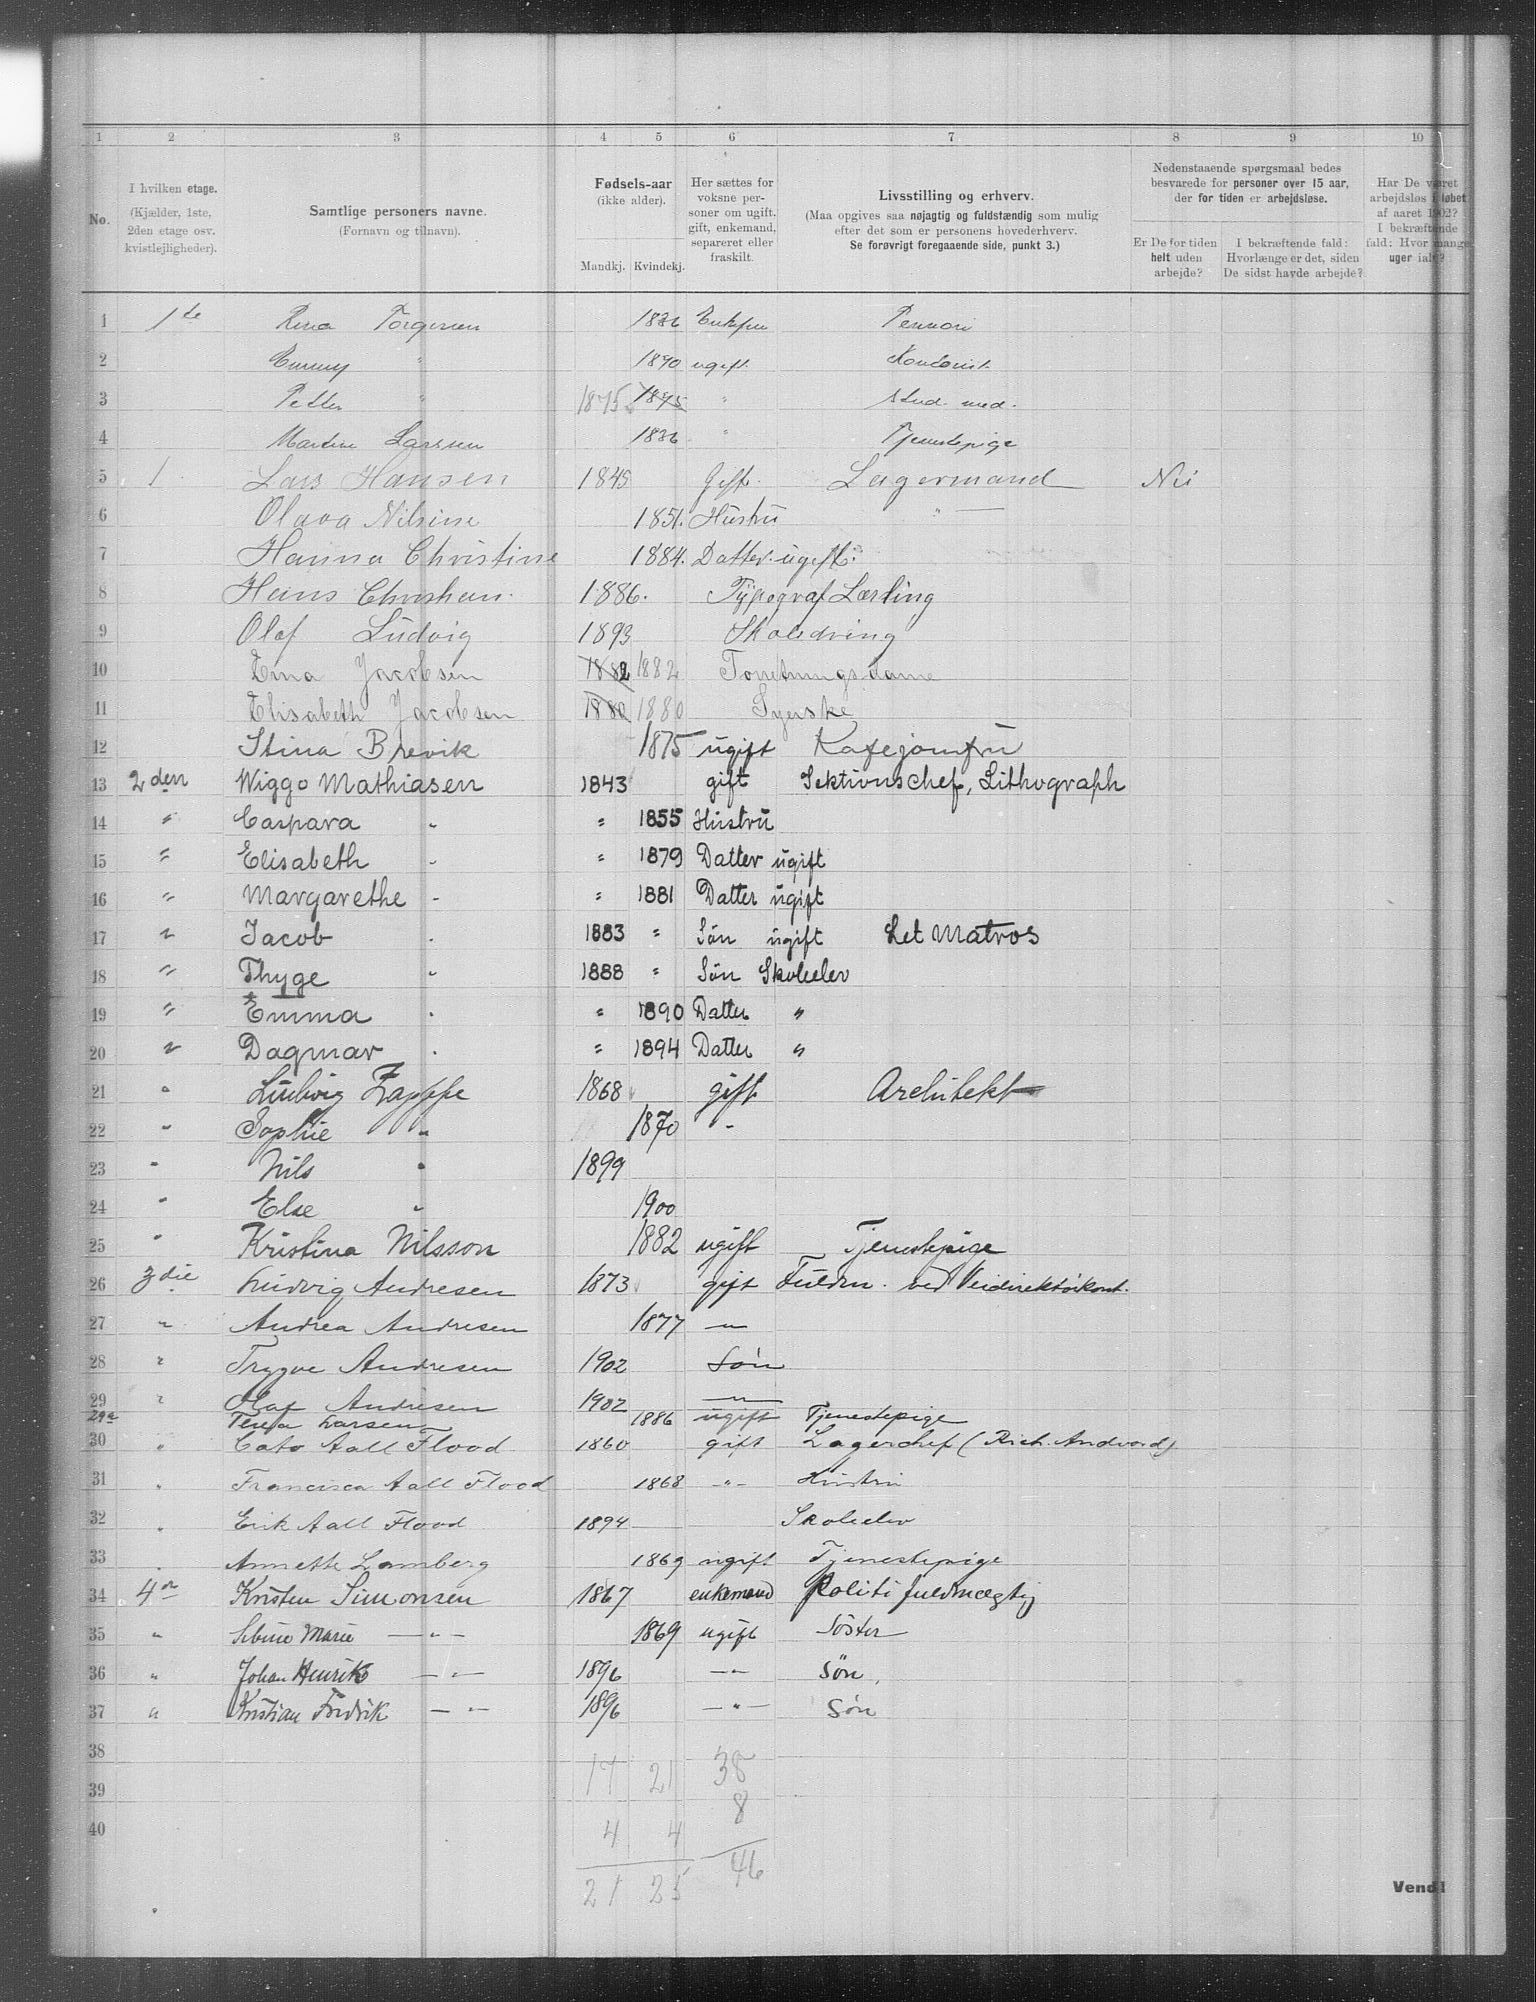 1 2 3 4 5 6 7 8 9 10
No.
I hvilken etage.
(Kjælder, 1ste,
2den etage osv.
kvistlejligheder).
Samtlige personers navne.
(Fornavn og tilnavn).
Fødsels-aar
(ikke alder).
Mandkj. Kvindekj.
Her sættes for
voksne per-
soner om ugift,
gift, enkemand,
separeret eller
fraskilt.
Livsstilling og erhverv.
(Maa opgives saa nøjagtig og fuldstændig som mulig
efter det som er personens hovederhverv.
Se forøvrigt foregaaende side, punkt 3.)
Nedenstaaende spørgsmaal bedes
besvarede for personer over 15 aar,
der for tiden er arbejdsløse.
Er De for tiden
helt uden
arbejde?
I bekræftende fald:
Hvorlænge er det, siden
De sidst havde arbejde?
Har De været
arbejdsløs i løbet
af aaret 1902?
I bekræftende
fald: Hvor mange
uger ialt?
1 1ste Torgersen 1836 Enkefru
2 Emmy " 1890 ugift
3 Petter " 1875 1875 " stud. med.
4 Larsen 1836 " Tjenestepige
5 1 Lars Hansen 1845 Gift. Lagermand Nei
6 Olava Nilsine 1851. Hustru " —
7 Hanna Christine 1884. Datter ugift.
8 Hans Christian. 1886. Typograf Lærling
9 Olaf Ludvig 1893 Skoledreng
10 Erna Jacobsen 1882 1882 Forretningsdame
11 Elisabeth Jacobsen 1880 1880 Syerske
12 Stina Brevik 1875 ugift Kafejomfru
13 2den Wiggo Mathiasen 1843 gift Sektionschef, Lithograph
14 " Caspara " " 1855 Hustru
15 " Elisabeth " " 1879 Datter ugift
16 " Margarethe " " 1881 Datter ugift
17 " Jacob " 1883 " Søn ugift Let Matros
18 " Thyge " 1888 " Søn Skoleelev
19 " Emma " " 1890 Datter "
20 " Dagmar " " 1894 Datter "
21 " Ludvig Zapffe 1868 gift Architekt
22 " Sophie " 1870 "
23 " Nils " 1899
24 " Else " 1900
25 " Kristina Nilsson 1882 ugift Tjenestepige
26 3die Ludvig Andresen 1873 gift Fuldm. ved Veidirektørkont.
27 " Andrea Andresen 1877 "
28 " Trygve Andresen 1902 Søn
29 " Olaf Andresen 1902 "
29a Larsen 1886 ugift Tjenestepige
30 " Cato Aall Flood 1860 gift Lagerchef (Rich. Andvord)
31 " Francisca Aall Flood 1868 " Hustru
32 " Erik Aall Flood 1894 Skoleelev
33 " Annette Lamberg 1869 ugift Tjenestepige
34 4de Kristen Simonsen 1867 enkemand Politifuldmægtig
35 " Marie — " — 1869 ugift Søster
36 " Johan Henrik — " — 1896 — " — Søn,
37 " Kristian Fredrik — " — 1896 — " — Søn
38
39
40
17 21 38
8
4 4
21 25 46
Vend!